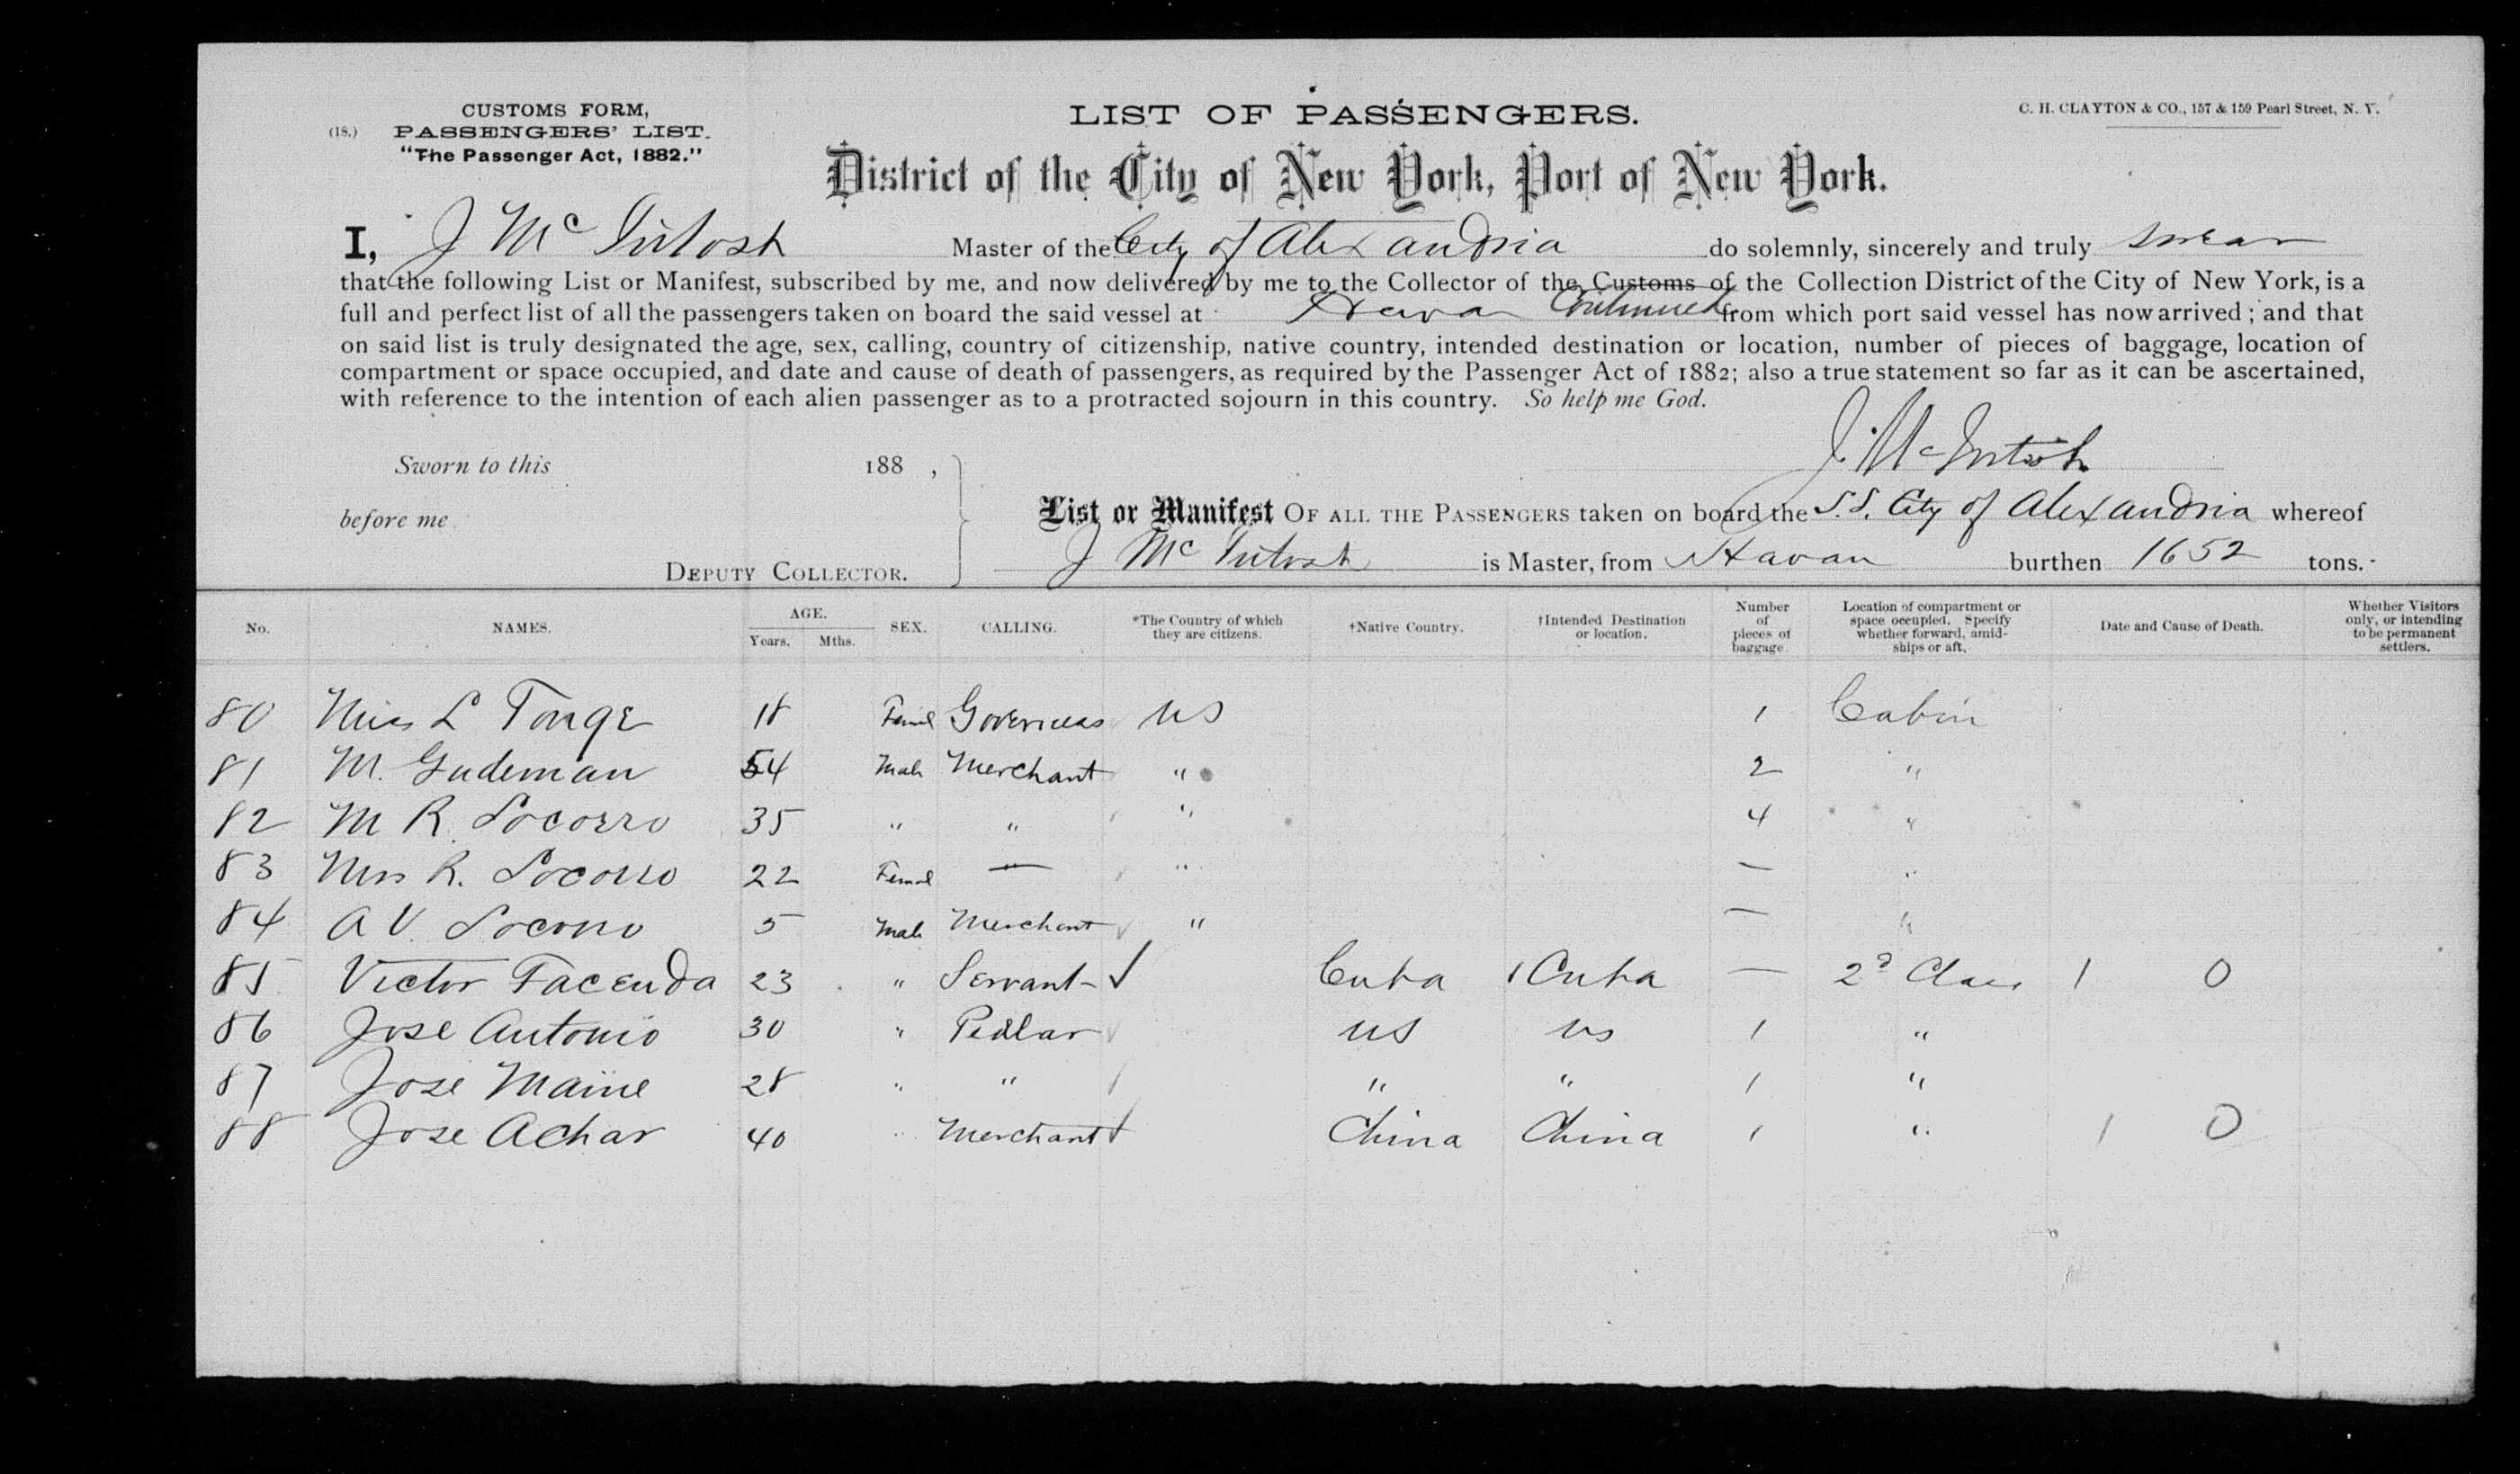 CUSTOMS FORM,
(18.) PASSENGERS' LIST.
"The Passenger Act, 1882."
LIST OF PASSENGERS.
C. H. CLAYTON & CO., 157 & 159 Pearl Street, N. Y.
District of the City of New York, Port of New York.
I, J Mc Intosh Master of the City of Alexandria do solemnly, sincerely and truly swear
that the following List or Manifest, subscribed by me, and now delivered by me to the Collector of the Customs of the Collection District of the City of New York, is a
full and perfect list of all the passengers taken on board the said vessel at Havan Continued from which port said vessel has now arrived; and that
on said list is truly designated the age, sex, calling, country of citizenship, native country, intended destination or location, number of pieces of baggage, location of
compartment or space occupied, and date and cause of death of passengers, as required by the Passenger Act of 1882; also a true statement so far as it can be ascertained,
with reference to the intention of each alien passenger as to a protracted sojourn in this country. So help me God.
J. Mc Intosh
Sworn to this 188 ,
before me
DEPUTY COLLECTOR.
List or Manifest OF ALL THE PASSENGERS taken on board the S.S. City of Alexandria whereof
J Mc Intosh is Master, from Havan burthen 1652 tons.
No. NAMES. AGE. Years. Mths. SEX. CALLING. *The Country of which they are citizens. †Native Country. †Intended Destination or location. Number of pieces of baggage. Location of compartment or space occupied. Specify whether forward, amidships or aft. Date and Cause of Death. Whether Visitors only, or intending to be permanent settlers.
80 Miss L Tonge 18 Feml Governess US 1 Cabin
81 M. Gudeman 54 Male Merchant " 2 "
82 M R. Socorro 35 " " " 4 "
83 Mrs R. Socorro 22 Feml — " — "
84 A V. Socorro 5 Male Merchant " — "
85 Victor Facenda 23 " Servant Cuba 1 Cuba — 2d Class 1 0
86 Jose Antonio 30 " Pedlar US US 1 "
87 Jose Maine 28 " " " " 1 "
88 Jose Achar 40 " Merchant China China 1 " 1 0